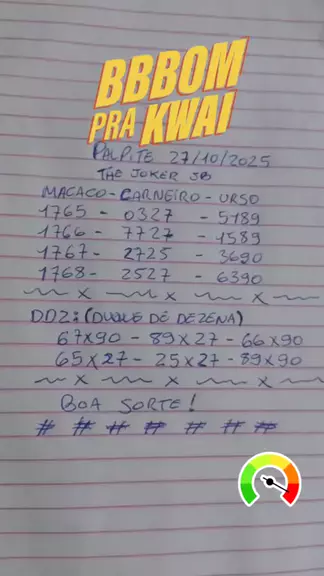 BBBOM
PRA KWAI
PALPITE 27/10/2025
THE JOKER JB
MACACO - CARNEIRO - URSO
1765 - 0327 - 5189
1766 - 7727 - 1589
1767 - 2725 - 3690
1768 - 2527 - 6390
x x x
DDZ: (DUQUE DE DEZENA)
67x90 - 89x27 - 66x90
65x27 - 25x27 - 89x90
x x x
BOA SORTE!
# # # # # # #